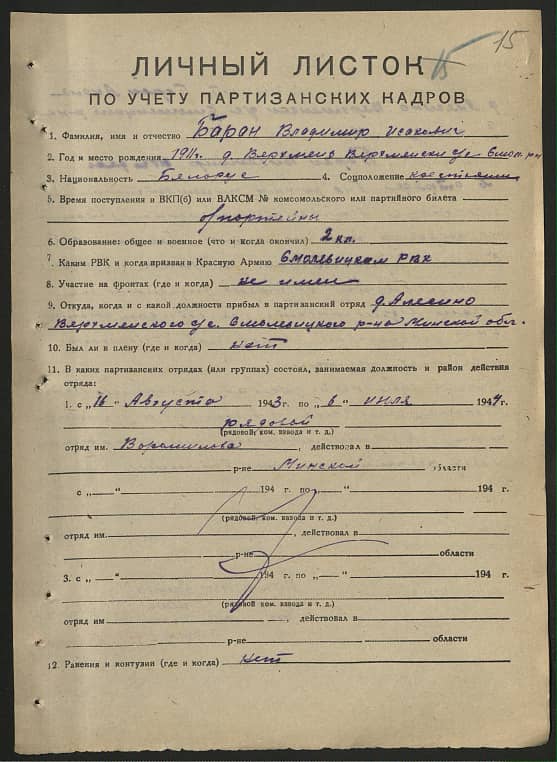 15
15
ЛИЧНЫЙ ЛИСТОК
ПО УЧЕТУ ПАРТИЗАНСКИХ КАДРОВ
1. Фамилия, имя и отчество Баран Владимир Исакович
2. Год и место рождения 1911г. д. Верхмень Верхменски с/с Смол. р-н
3. Национальность Белорус 4. Соцположение крестьянин
5. Время поступления и ВКП(б) или ВЛКСМ № комсомольского или партийного билета
б/партейны
6. Образование: общее и военное (что и когда окончил) 2 кл.
7. Каким РВК и когда призван в Красную Армию Смолевицким РВК
8. Участие на фронтах (где и когда) не имел
9. Откуда, когда и с какой должности прибыл в партизанский отряд д. Алесино
Верхменского с/с. Смолевицкого р-на Минской обл.
10. Был ли в плену (где и когда) нет
11. В каких партизанских отрядах (или группах) состоял, занимаемая должность и район действия
отряда:
1. с „16" Августа 1943 г. по „6" июля 1944 г.
рядовой
(рядовой, ком. взвода и т. д.)
отряд им. Ворошилова, действовал в
р-не Минской области
с „ " 194 г. по „ " 194 г.
(рядовой, ком. взвода и т. д.)
отряд им. , действовал в
р-не области
3. с „ " 194 г. по „ " 194 г.
(рядовой, ком. взвода и т. д.)
отряд им , действовал в
р-не области
12. Ранения и контузии (где и когда) нет